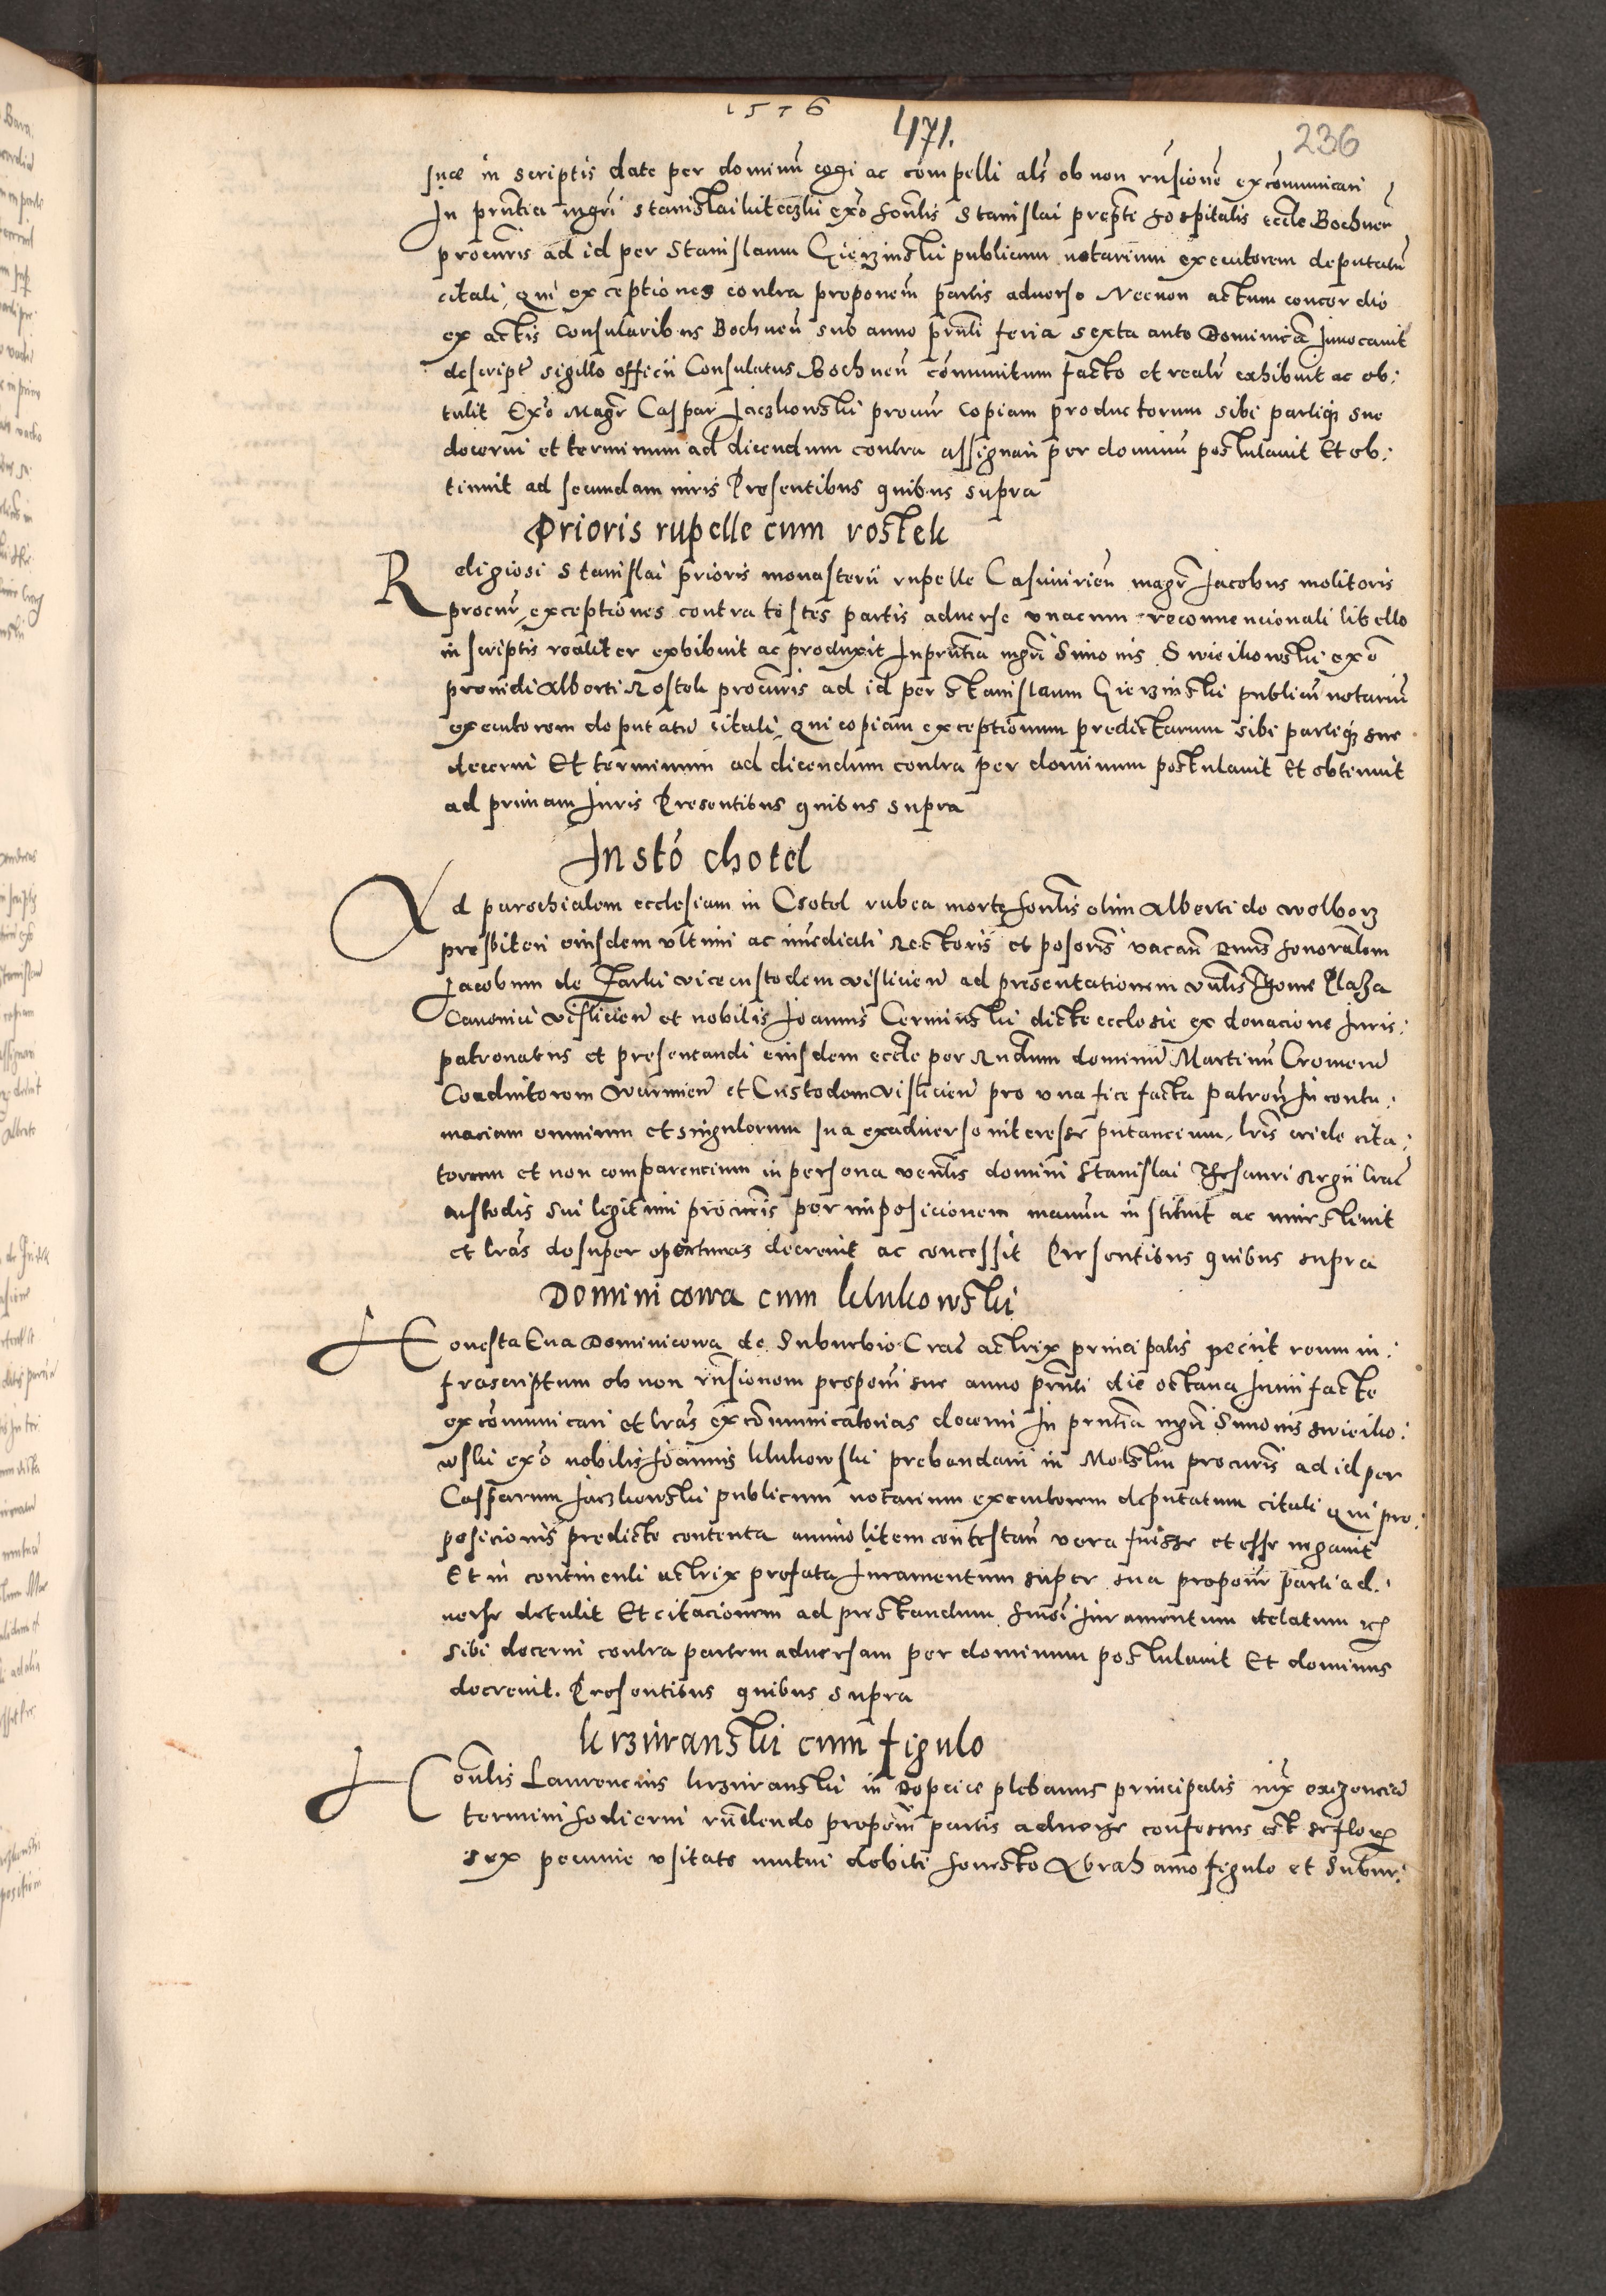 1576
471.
236
suae in scriptis date per dominũ cogi ac compelli als ob non rñsionẽ excõmunicari
In prñtia mgri Stanislai luteczki exo honlis Stanislai prepti hospitalis eccle Bochneñ
procuris ad id per Stanislaum Gierzinski publicum notarium executorem deputatũ
citati, qui exceptiones contra proponem partis adverse Necnon actum concordie
ex actis Consularibus Bochneñ sub anno prñti feria sexta ante Dominicã Invocavit
descript sigillo officii Consulatus Bochneñ cõmunitum facto et realr exhibuit ac ob:
tulit Exo Magr Caspar Iaczkowski procur Copiam productorum sibi partiq sue
decerni et terminum ad dicendum contra assignari per dominũ postulavit Et ob:
tinuit ad secundam iuris Presentibus quibus supra
Prioris rupelle cum rostek
Religiosi Stanislai prioris monasterii rupelle Casimirieñ magr Iacobus molitoris
procur exceptiones contra testes partis adverse unacum reconuencionali libello
in scriptis realiter exhibuit ac produxit In prñtia mgri Simonis Swieikowski exo
providi Alberti Rostek procuris ad id per Stanislaum Gierzinski publicũ notariũ
executorem deputatũ citati, qui copiam exceptionum predictarum sibi partiq sue
decerni Et terminum ad dicendum contra per dominum postulavit Et obtinuit
ad primam Iuris Presentibus quibus supra
Insto chotel
Ad parochialem ecclesiam in Csotel rubea morte honlis olim Alberti de wolborz
presbiteri eiusdem ultimi ac imediati Rectoris et posoris vacañ Dnus honoralem
Iacobum de Tarki vicecustodem visliciens ad presentationem vnlis Thome Plaza
Canonici visliciens et nobilis Ioannis Cerminski dicte ecclesie ex donacione Iuris:
patronatus et presentandi eiusdem eccle per Rndum dominũ Martinũ Cromerũ
Coadiutorem Warmieñ et Custodem visliciens pro una fice facta patroñ In contu:
maciam omnium et singulorum sua exadverso interesse putancium, lris cride cita:
torum et non comparencium in persona venlis domini Stanislai Thesauri Regii Crac
custodis sui legitimi procuris per imposicionem manuũ instituit ac investivit
et lras desuper oportunas decrevit ac concessit Presentibus quibus supra
Dominicowa cum klukowski
Honesta Eva Dominicowa de Suburbio Crac actrix principalis peciit reum in:
frascriptum ob non rñsionem proponi sue anno prñti die octava Iunii facte
excõmunicari et lras excõmunicatorias decerni In prñtia mgri Simonis swieiko:
wski exo nobilis Ioannis klukowski prebendarii in Mstki procuris ad id per
Casparum Iaczkowski publicum notarium executorem deputatum citati qui pro:
posicionis predicte contenta animo litem contestañ vera fuisse et esse negavit
Et in continenti actrix prefata Iuramentum super sua proponi parti ad:
verse detulit Et citacionem ad prestandum hmoi Iuramentum delatum
sibi decerni contra partem adversam per dominum postulavit Et dominus
decrevit. Presentibus quibus supra
krziviranski cum figulo
Honlis Laurencius krzviranski in Dopcice plebanus principalis iux exigenciã
termini hodierni rñdendo proponi partis adverse confessus est se flor
sex pecunie usitate mutui debiti honesto Abrahamo figulo et Subur: